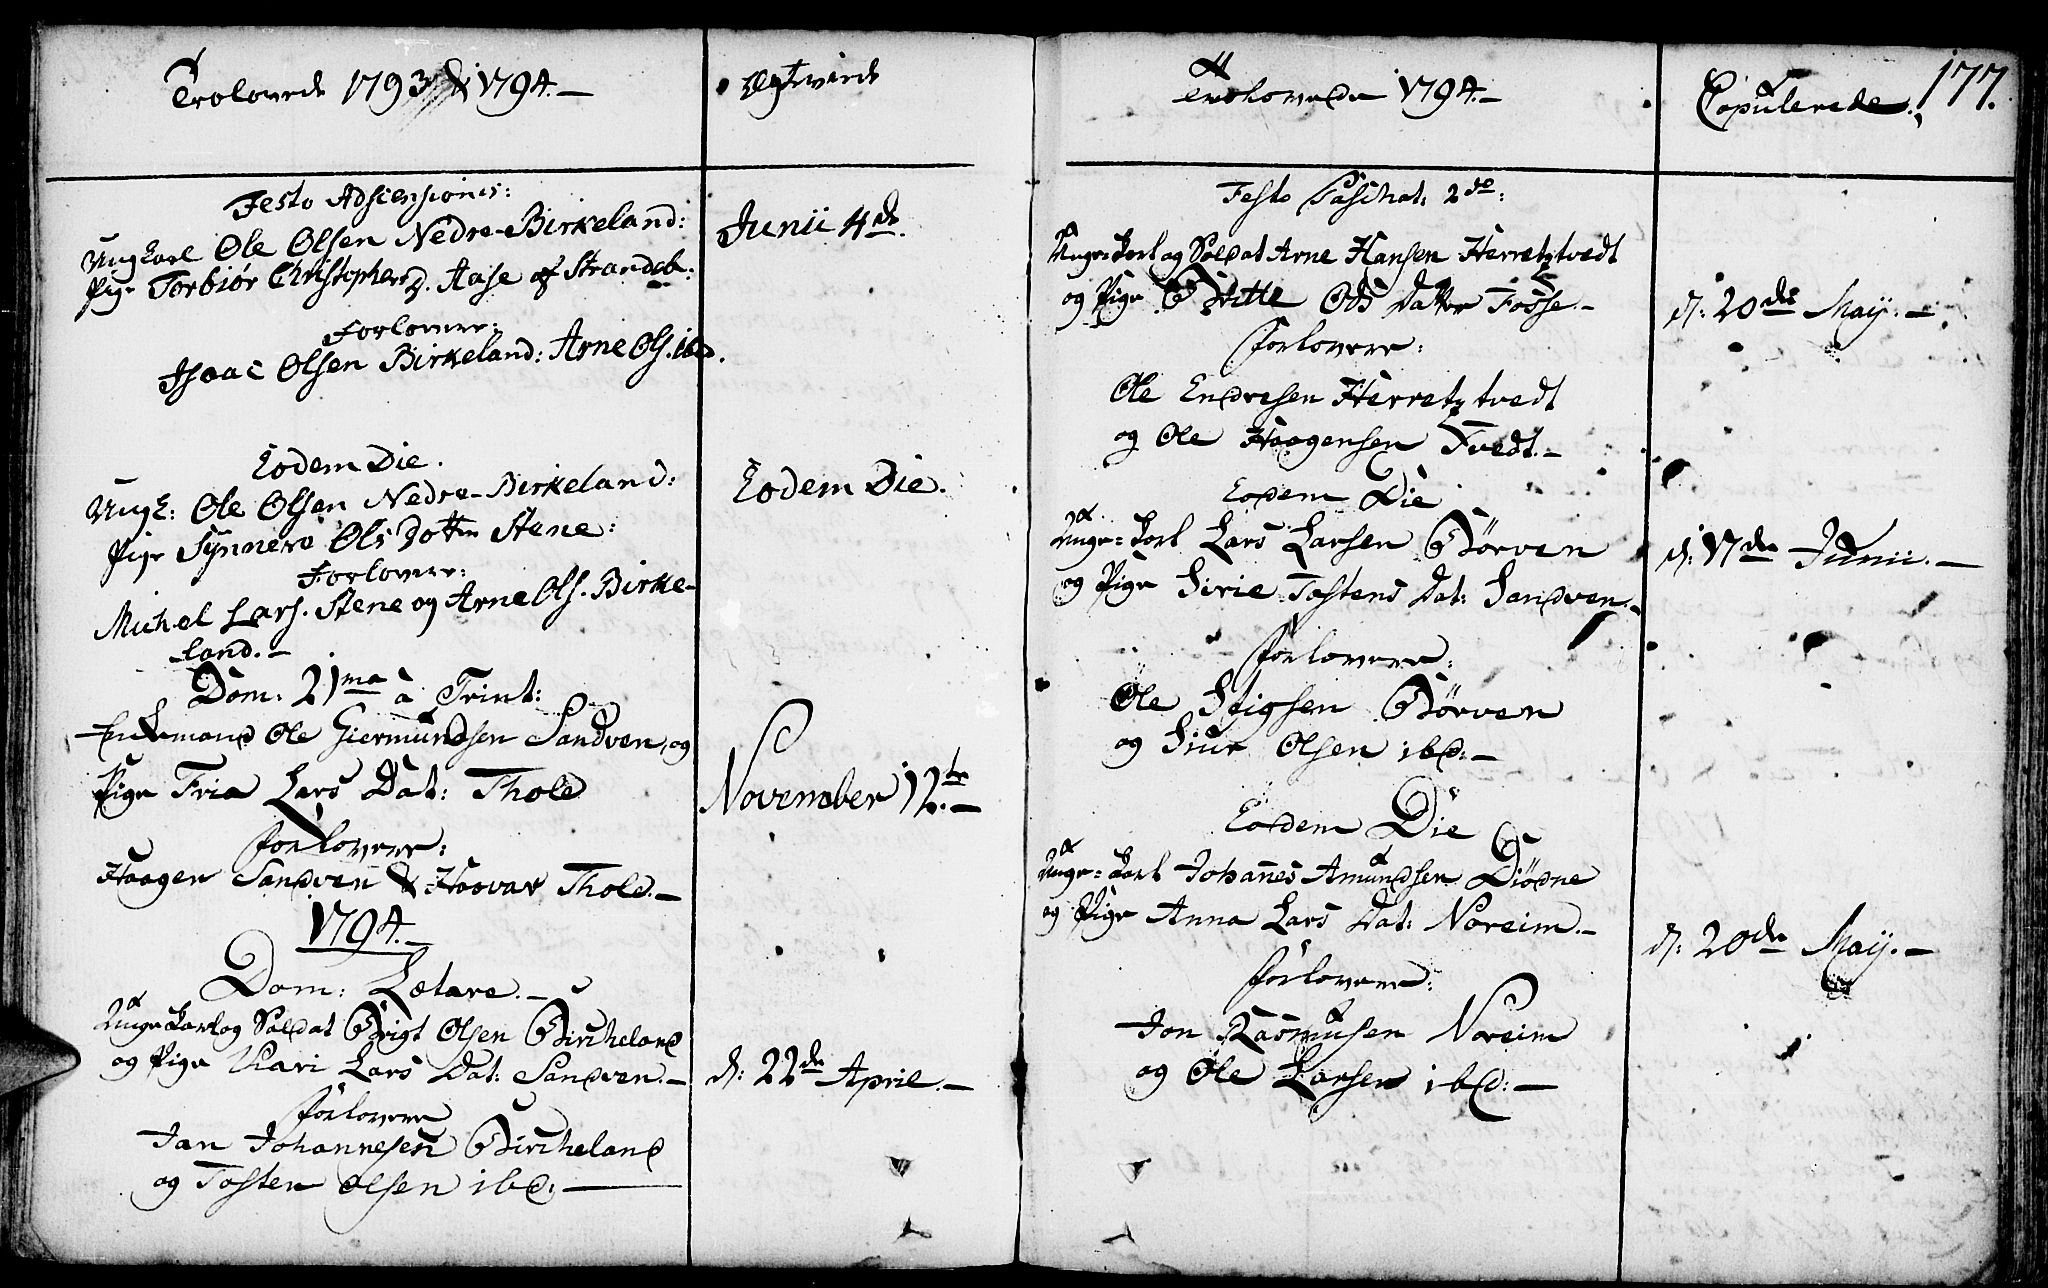 Trolovede 1793 & 1794.-
Ægtviede
Festo Adscensionis:
Ungkarl Ole Olsen Nedre-Birkeland:
Pige Torbiør Christophersd. Aase af Strandeb:
Forlovere:
Isaac Olsen Birkeland: Arne Ols. ibd.
Junii 4de.
Eodem Die.
Ungk: Ole Olsen Nedre-Birkeland:
Pige Synneve Ols Dotter Stene:
Forlovere:
Michel Lars. Stene og Arne Ols. Birke-
land.-
Eodem Die.
Dom: 21ma à Trint:
Enkemand Ole Giermundsen Sandven og
Pige Fria Lars Dat: Thole
Forlovere:
Haagen Sandven & Haavar Thole.-
November 12te.-
1794.-
Dom: Lætare.-
Unge Karl og Soldat Brigt Olsen Bircheland
og Pige Kari Lars Dat: Sandven.-
Forlovere
Jan Johannesen Bircheland
og Tosten Olsen ibd:-
d: 22de April.-
Trolovede 1794.-
Copulerede.
177.
Festo Paschat: 2do:
Unge Karl og Soldat Arne Hansen Herretztvedt
og Pige Britte Ols Datter Fosse.-
Forlovere:
Ole Endresen Herretztvedt
og Ole Haagensen Tvedt.-
d: 20de May.-
Eodem Die
Unge=Karl Lars Larsen Børven
og Pige Sirie Tostens Dat: Sandven.-
Forlovere:
Ole Stigsen Børven
og Siur Olsen ibd:-
d: 17de Junii.-
Eodem Die
Unge=Karl Johannes Amundsen Diødne
og Pige Anna Lars Dat: Noreim.-
Forlovere:
Jon Rasmusen Noreim
og Ole Larsen ibd:-
d: 20de May.-